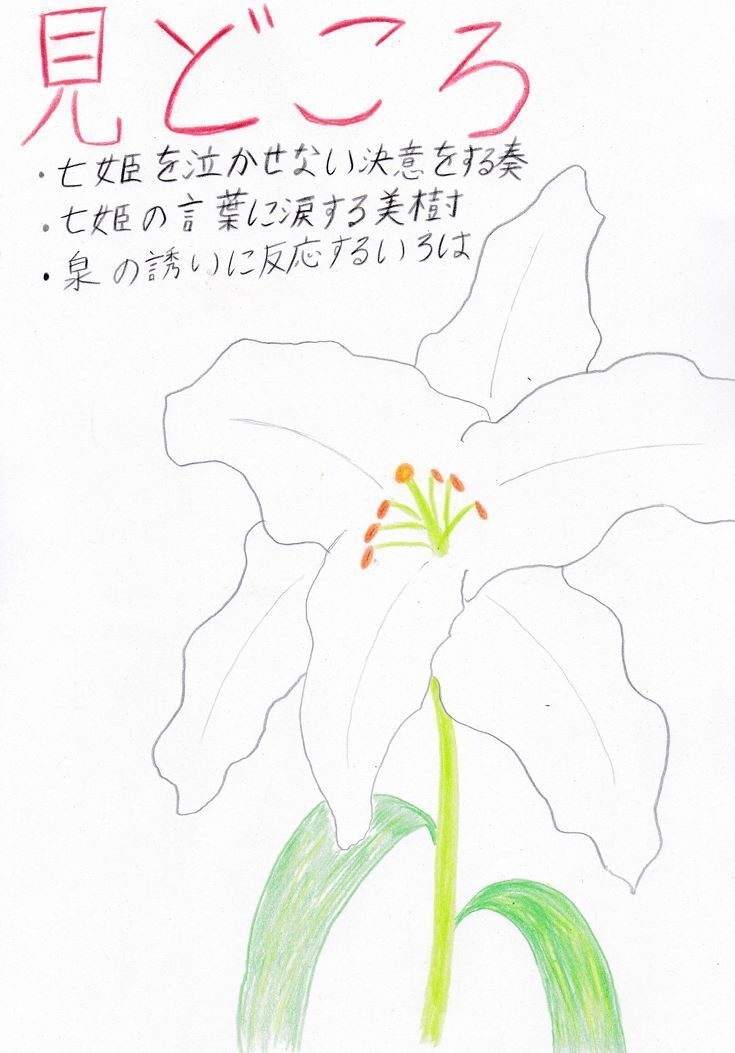 見どころ
・七姫を泣かせない決意をする奏
・七姫の言葉に涙する美樹
・泉の誘いに反応するいろは